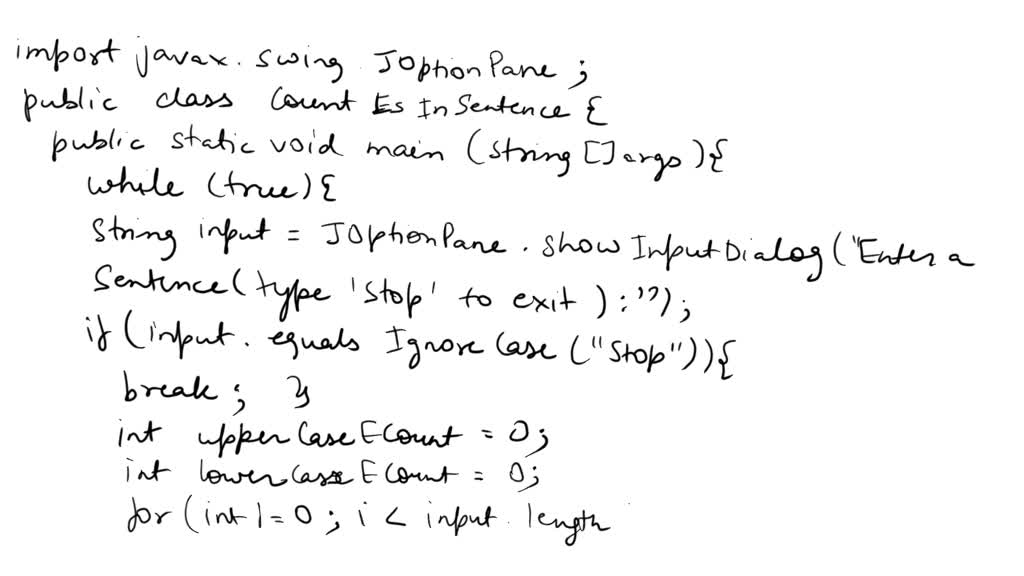 import javax.swing.JOptionPane;
public class Count Es In Sentence {
public static void main (String [] args){
while (true){
String input = JOptionPane.showInputDialog("Enter a
Sentence (type 'Stop' to exit ):");
if (input.equals Ignore Case ("Stop")){
break; }
int upperCaseECount = 0;
int lowerCaseECount = 0;
for (int i=0; i < input.length